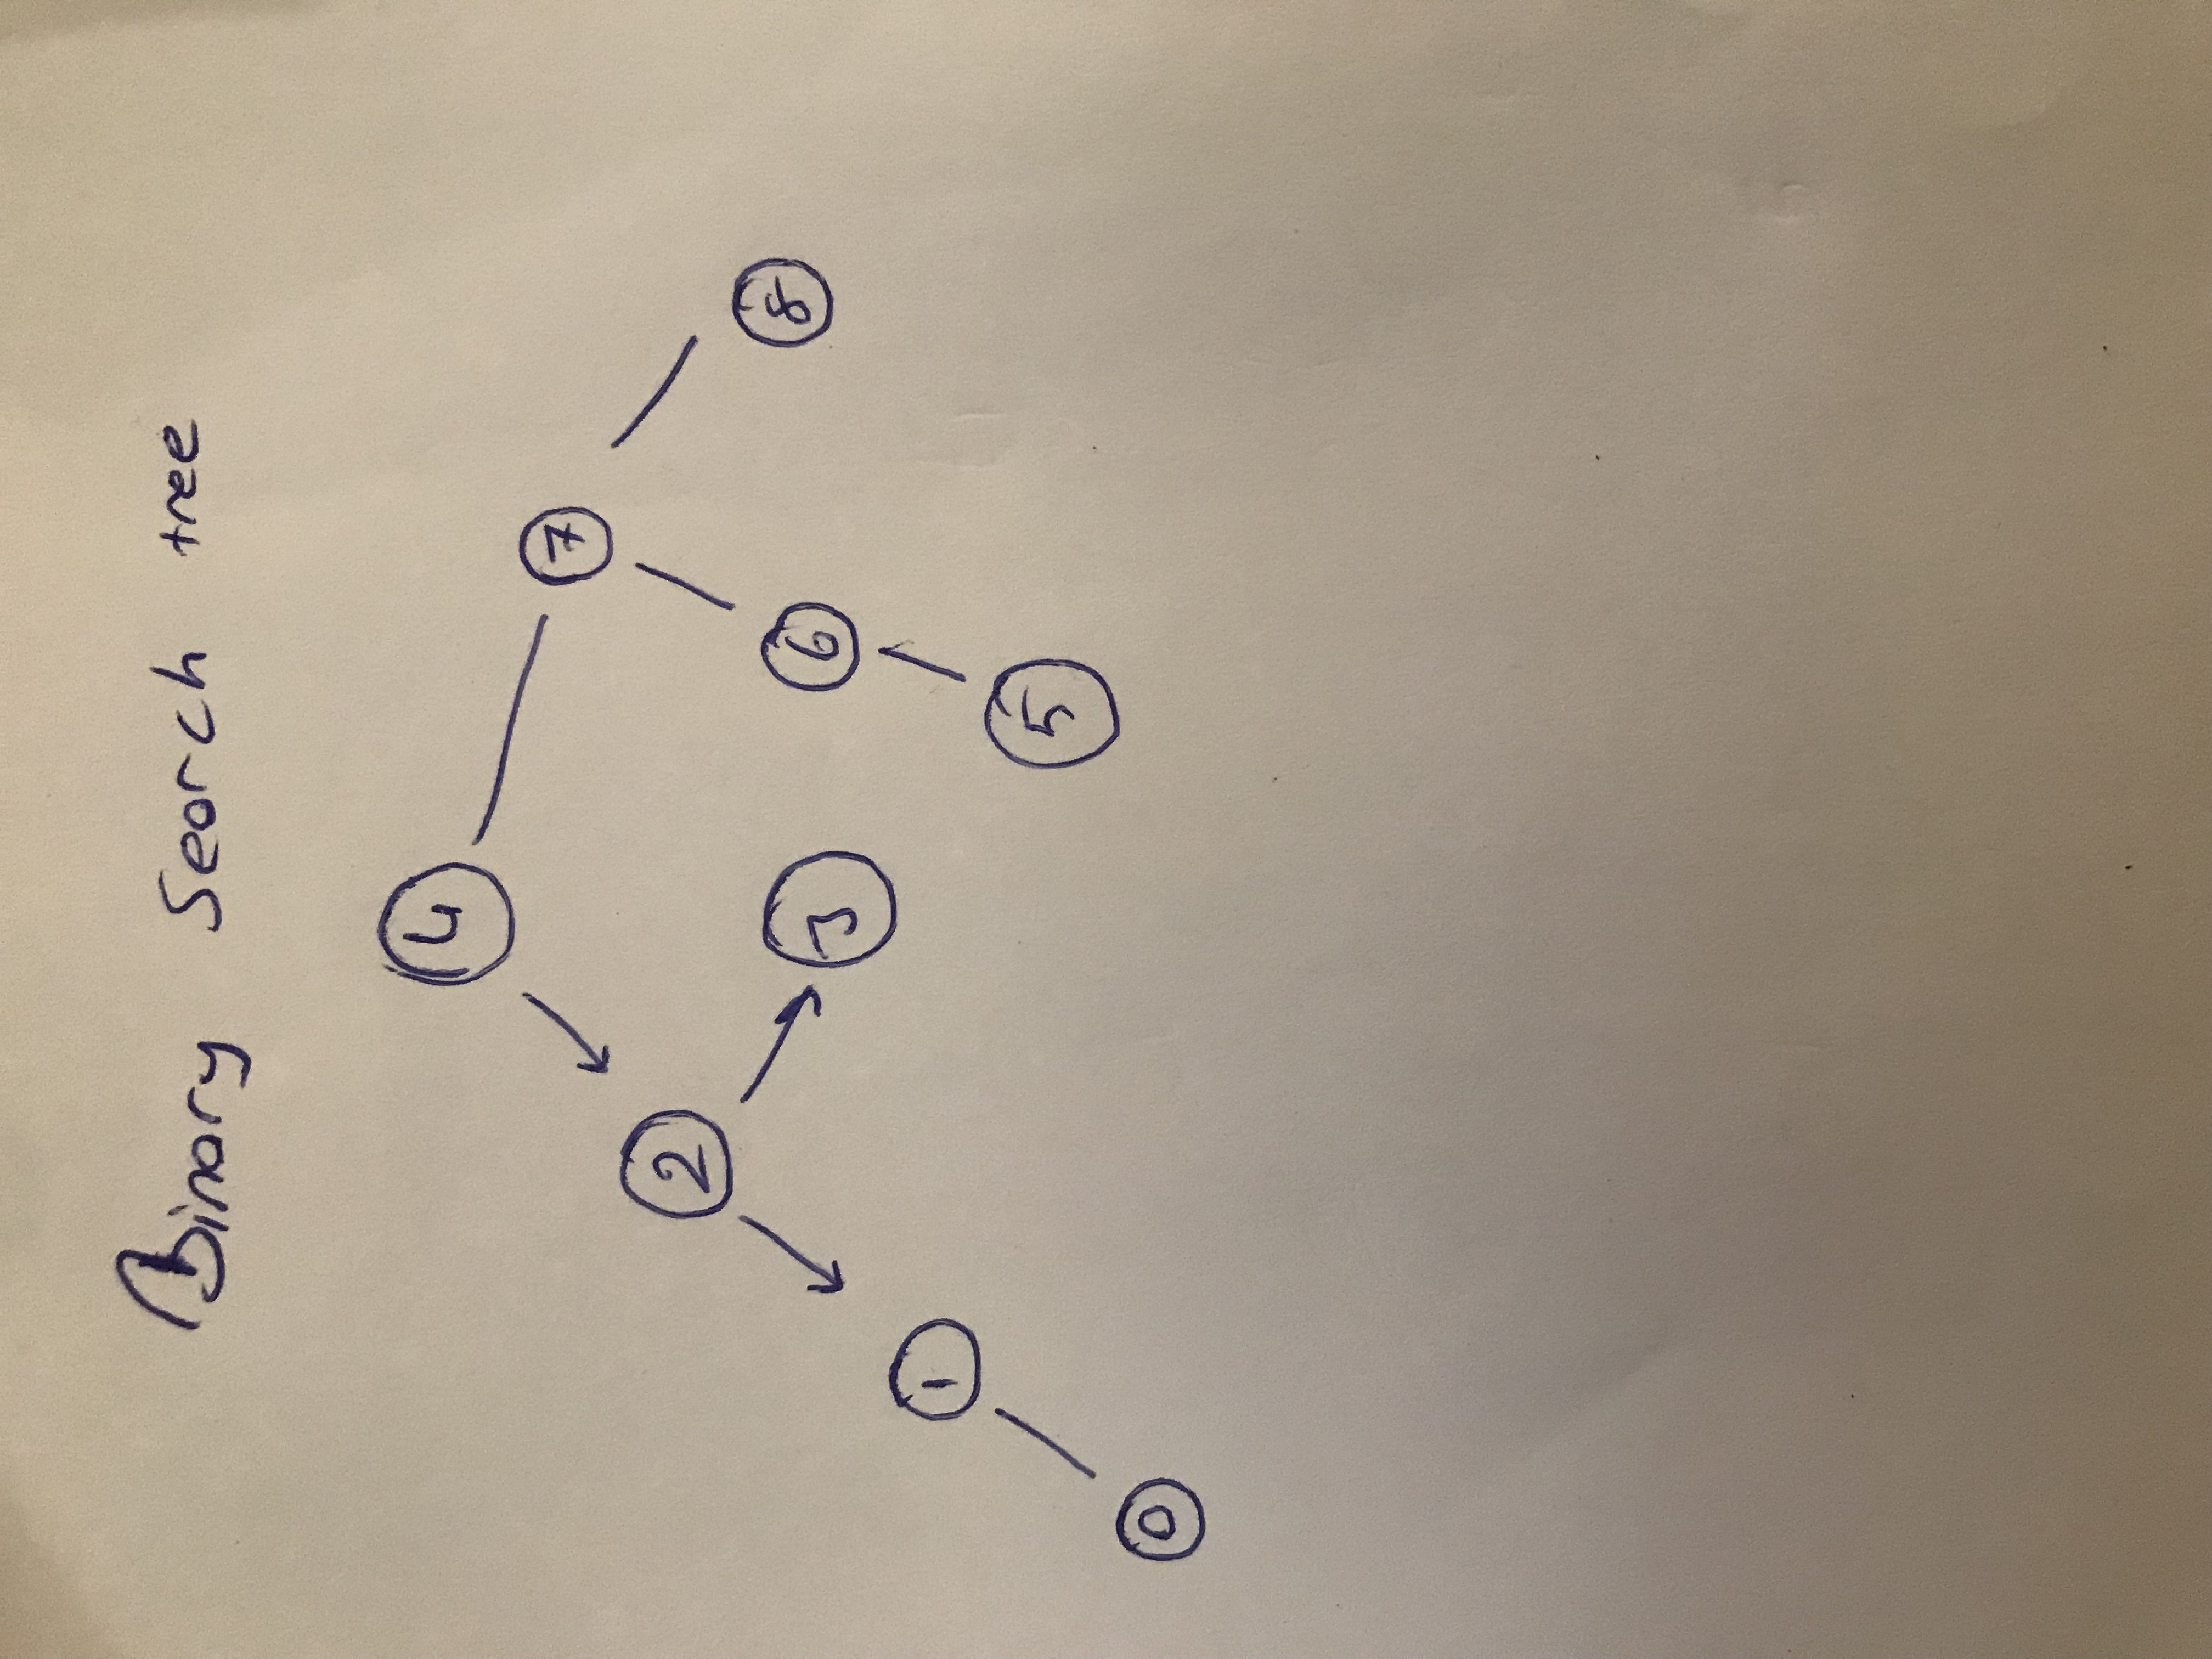 Binary Search tree
4
7
2
3
6
8
1
5
0